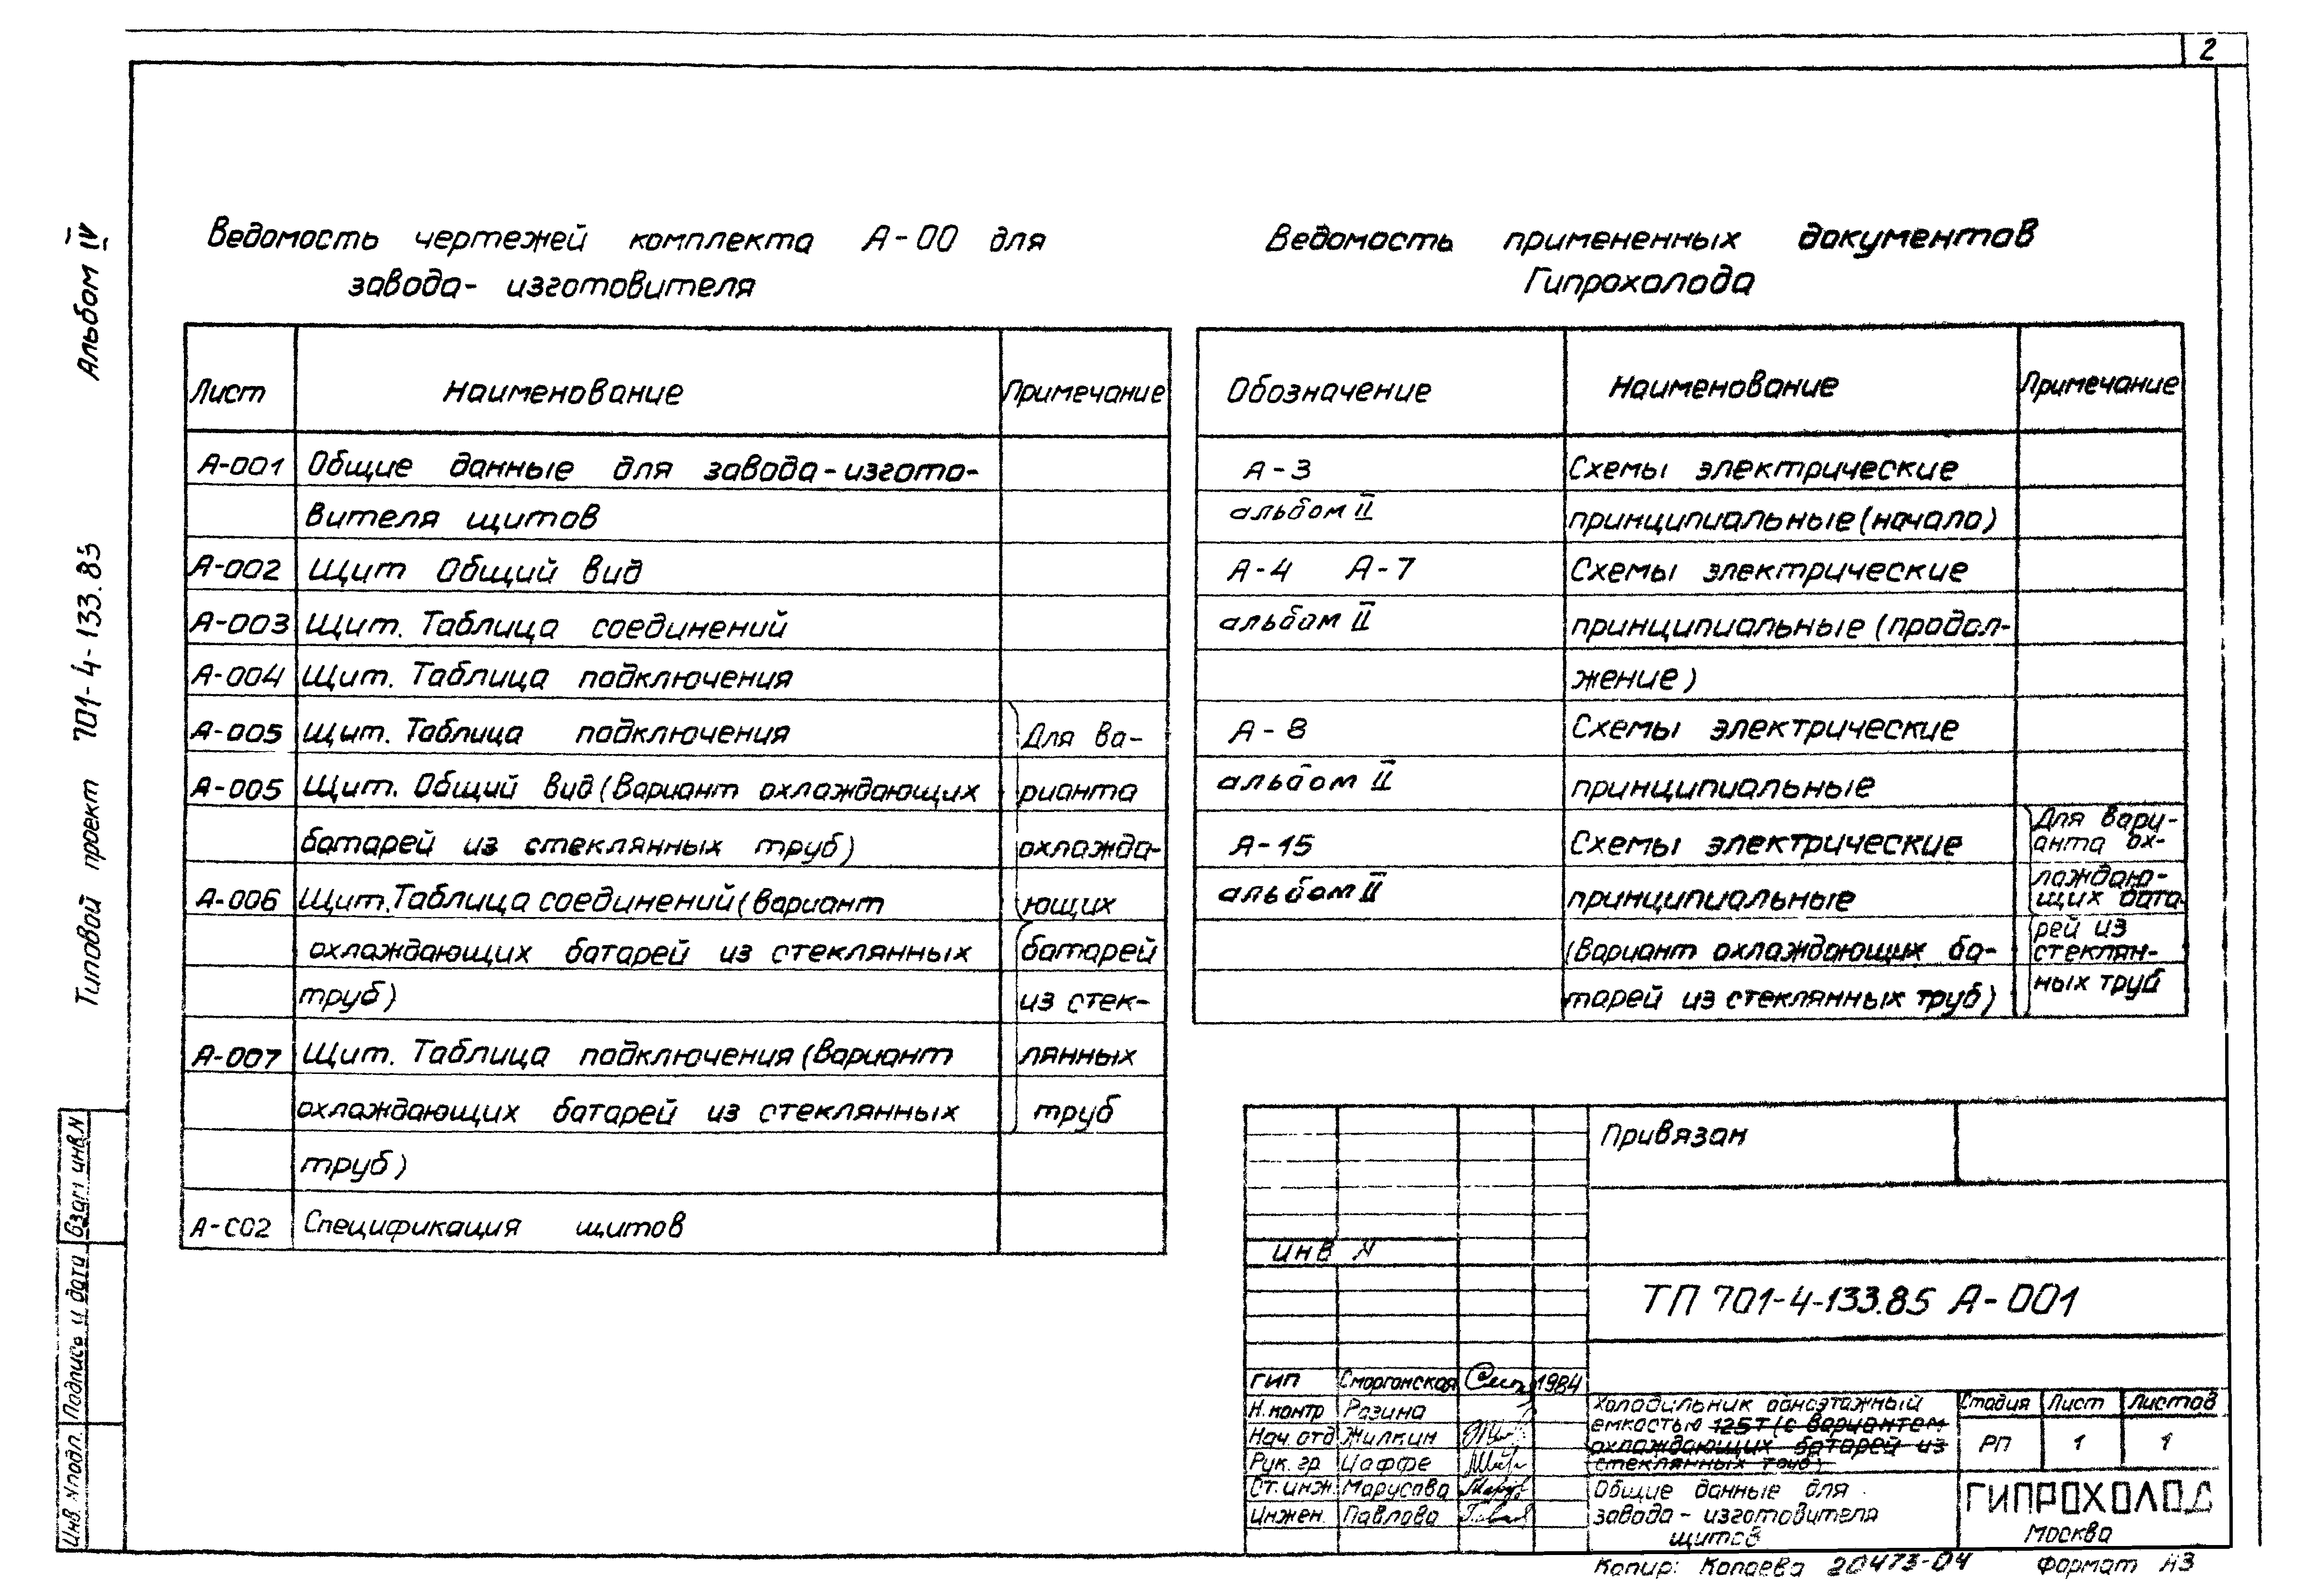 2
Альбом IV
Типовой проект 701-4-133.85
Ведомость чертежей комплекта А-00 для
завода- изготовителя
Лист Наименование Примечание
А-001 Общие данные для завода-изгото-
вителя щитов
А-002 Щит Общий вид
А-003 Щит. Таблица соединений
А-004 Щит. Таблица подключения
А-005 Щит. Таблица подключения Для ва-
А-005 Щит. Общий вид (вариант охлаждающих рианта
батарей из стеклянных труб) охлажда-
А-006 Щит. Таблица соединений (вариант ющих
охлаждающих батарей из стеклянных батарей
труб) из стек-
А-007 Щит. Таблица подключения (вариант лянных
охлаждающих батарей из стеклянных труб
труб)
А-С02 Спецификация щитов
Ведомость примененных документов
Гипрохолода
Обозначение Наименование Примечание
А-3 Схемы электрические
альбом II принципиальные (начало)
А-4 А-7 Схемы электрические
альбом II принципиальные (продол-
жение)
А-8 Схемы электрические
альбом II принципиальные
А-15 Схемы электрические
альбом II принципиальные
(вариант охлаждающих ба-
тарей из стеклянных труб)
Для вари-
анта ох-
лаждаю-
щих бата-
рей из
стеклян-
ных труб
Привязан
Инв N
ТП 701-4-133.85 А-001
ГИП Сморгонская 1984
Н. контр Розина
Нач. отд Жилкин
Рук. гр Иоффе
Ст. инж. Марусова
Инжен. Павлова
Холодильник одноэтажный
емкостью 125Т (с вариантом
охлаждающих батарей из
стеклянных труб)
Стадия Лист Листов
РП 1 1
Общие данные для
завода - изготовителя
щитов
ГИПРОХОЛОД
Москва
Копир: Копаева 20473-04 Формат А3
Инв. N подл. Подпись и дата Взам инв. N